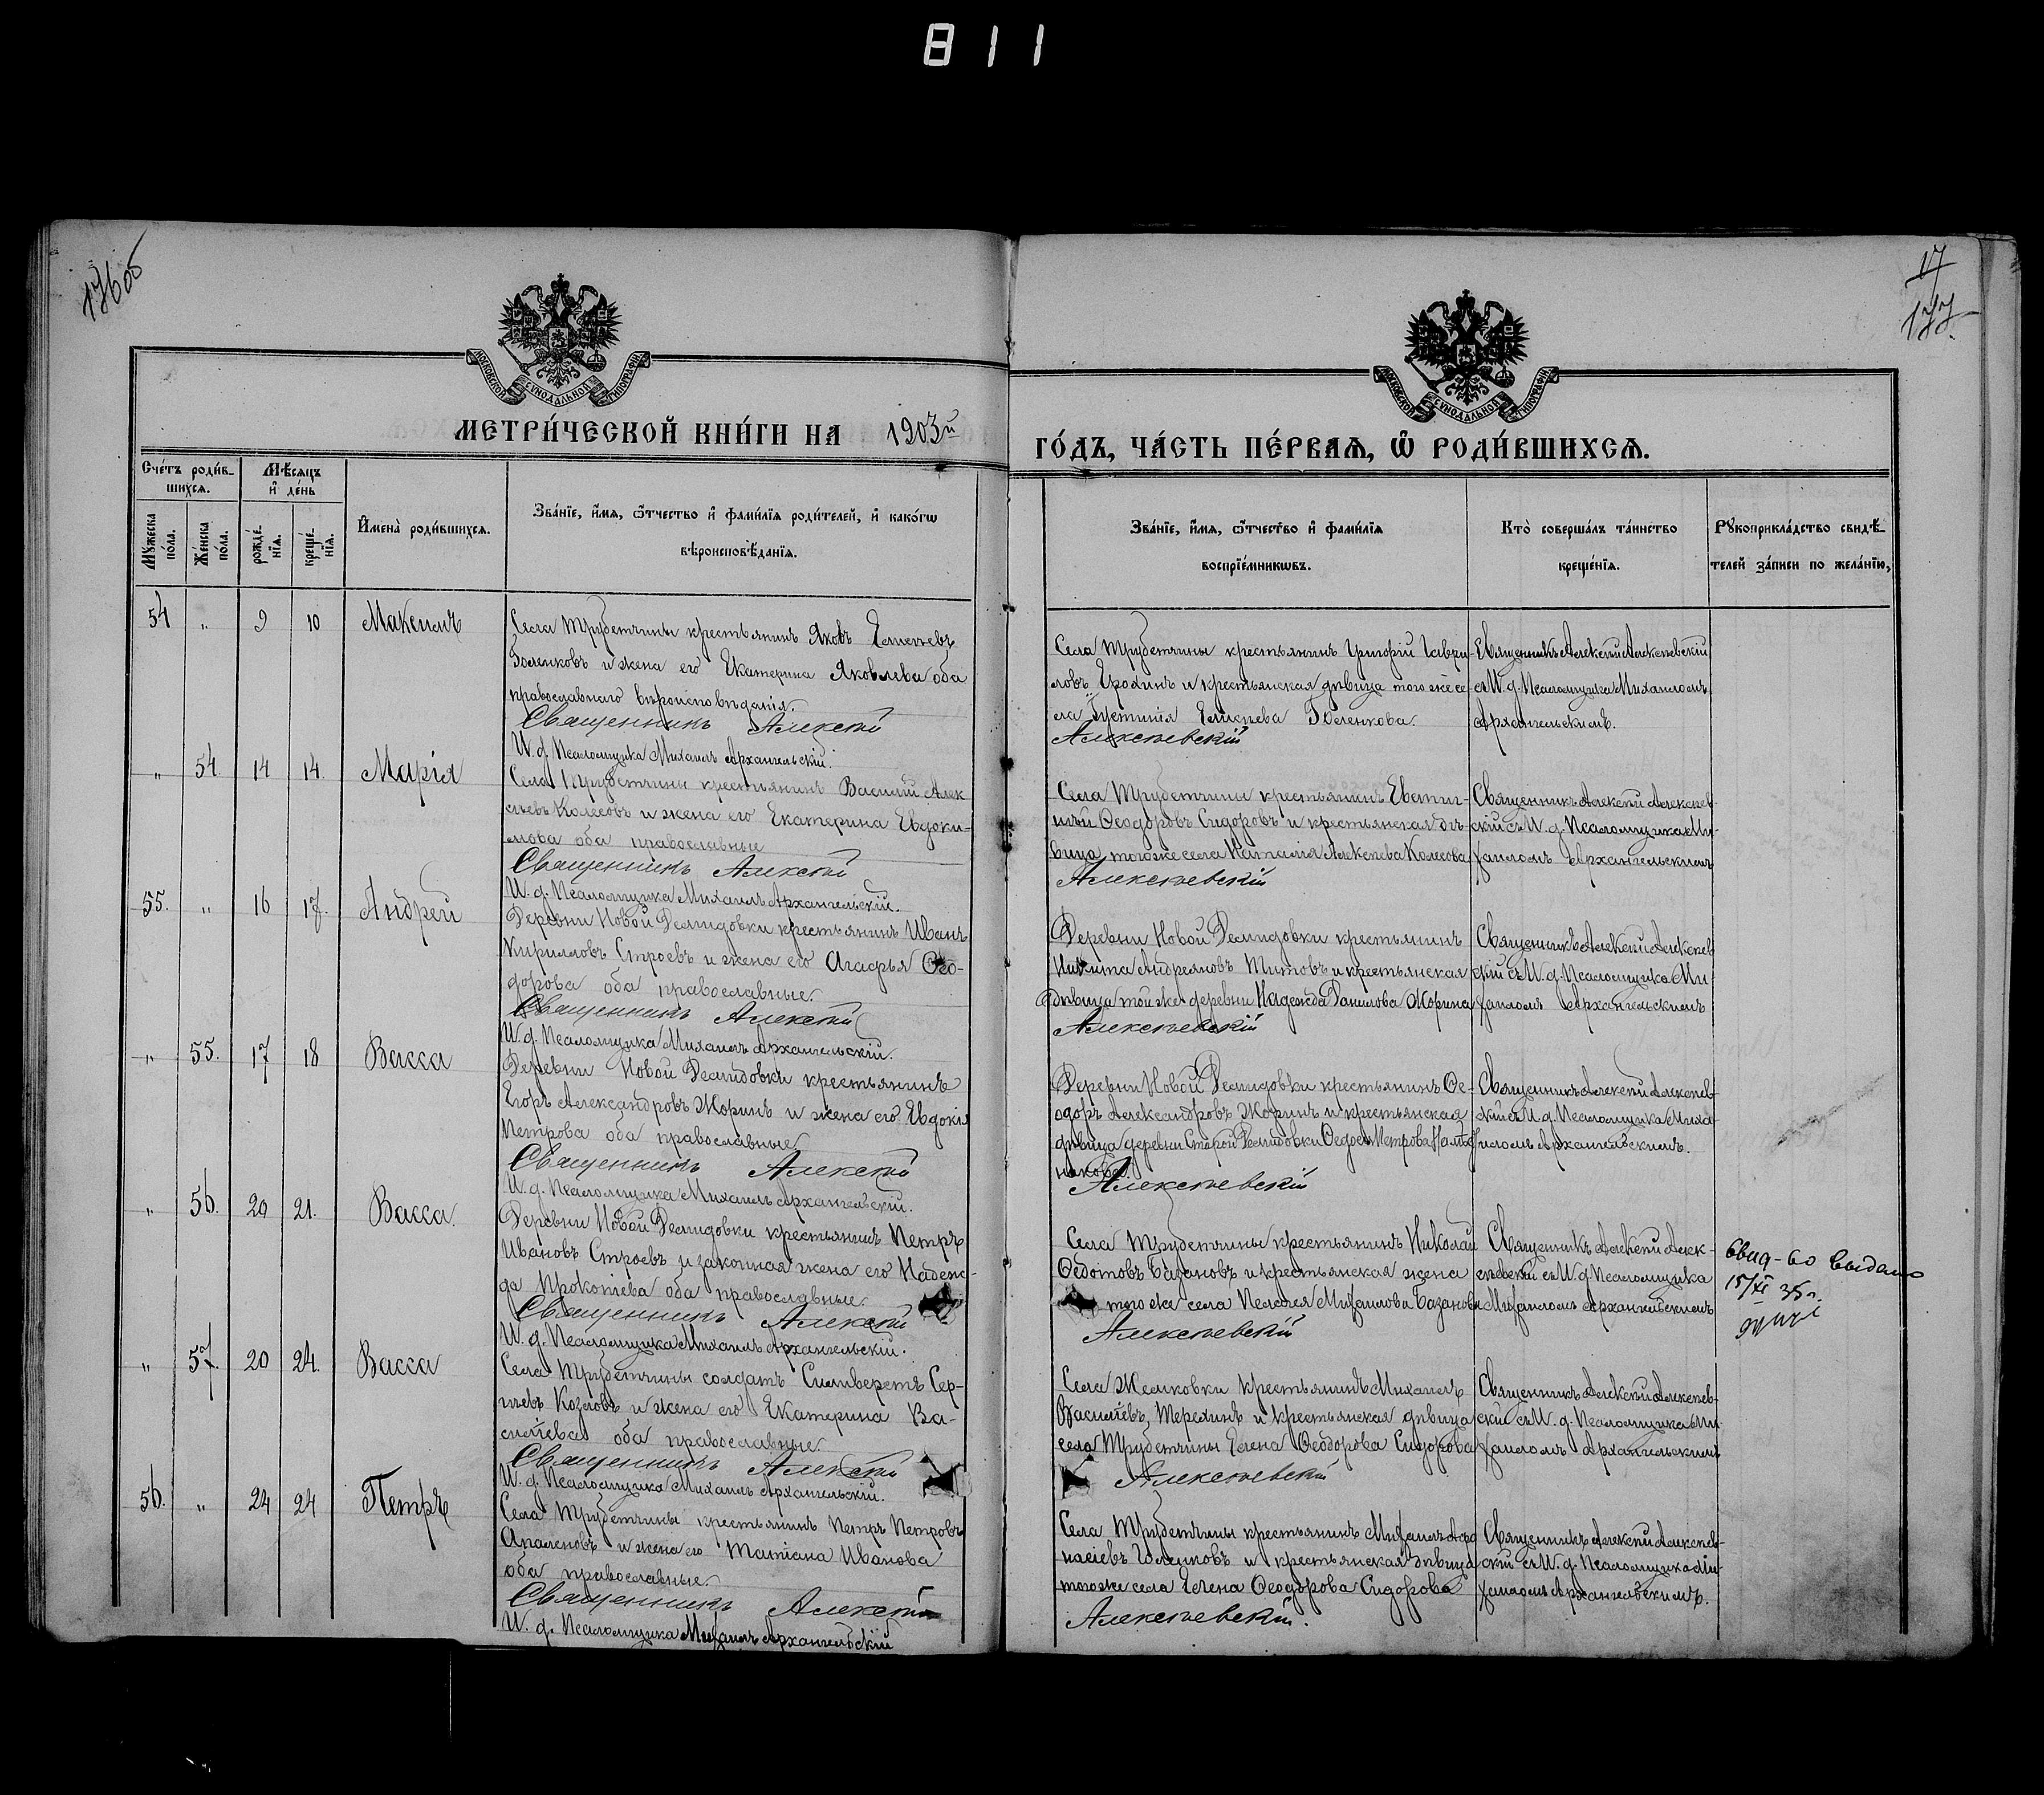 811
176об
17
177
МОСКОВСКОЙ СѴНОДАЛЬНОЙ ТИПОГРАФІИ
МОСКОВСКОЙ СѴНОДАЛЬНОЙ ТИПОГРАФІИ
МЕТРИ́ЧЕСКОЙ КНИ́ГИ НА 1903й
ГО́ДЪ, ЧА́СТЬ ПЕ́РВАѦ, Ѽ РОДИ́ВШИХСѦ.
Сче́тъ роди́в-
шихсѧ.
Мѣ́сяцъ
и҆ де́нь
Мꙋ́жеска
по́ла.
Же́нска
по́ла.
рожде́-
нїѧ.
креще́-
нїѧ.
И҆мена̀ роди́вшихсѧ.
Зва́нїе, и҆́мѧ, ѻ҆́тчество и҆ фами́лїѧ роди́телей, и҆ како́гѡ
вѣроисповѣ́данїѧ.
Зва́нїе, и҆́мѧ, ѻ҆́тчество и҆ фами́лїѧ
воспрїе́мникѡвъ.
Кто̀ соверша́лъ та́инство
креще́нїѧ.
Рꙋкоприкла́дство свидѣ́-
телей за́писи по жела́нїю,
54 „ 9 10 Максимъ
Села Трубетчины крестьянинъ Яковъ Елисѣевъ
Голенковъ и жена его Екатерина Яковлева оба
православнаго вѣроисповѣданія.
Священникъ Алексѣй
И. д. Псаломщика Михаилъ Архангельскій.
Села Трубетчины крестьянинъ Григорій Гаври-
ловъ Ерохинъ и крестьянская дѣвица того же се-
ла Устинія Елисѣева Голенкова.
Алексѣевскій
Священникъ Алексѣй Алексѣевскій
съ И. д. Псаломщика Михаиломъ
Архангельскимъ.
„ 54 14 14. Марія
Села Трубетчины крестьянинъ Василій Алек
сѣевъ Колесовъ и жена его Екатерина Евдоки-
мова оба православные
Священникъ Алексѣй
И. д. Псаломщика Михаилъ Архангельскій.
Села Трубетчины крестьянинъ
Ѳеодоровъ Сидоровъ и крестьянская дѣ-
вица того же села Наталія Алексѣева Колесова
Алексѣевскій
Священникъ Алексѣй Алексѣев-
скій съ И. д. Псаломщика Ми-
хаиломъ Архангельскимъ
55. „ 16 17. Андрей
Деревни Новой Демидовки крестьянинъ Иванъ
Кирилловъ Строевъ и жена его Агафья Ѳео-
дорова оба православные.
Священникъ Алексѣй
И. д. Псаломщика Михаилъ Архангельскій.
Деревни Новой Демидовки крестьянинъ
Никита Андреяновъ Титовъ и крестьянская
дѣвица той же деревни Надежда Данилова Жорина
Алексѣевскій
Священникъ Алексѣй Алексѣев
скій съ И. д. Псаломщика Ми-
хаиломъ Архангельскимъ
„ 55. 17 18 Васса
Деревни Новой Демидовки крестьянинъ
Егоръ Александровъ Жоринъ и жена его Евдокія
Петрова оба православные
Священникъ Алексѣй
И. д. Псаломщика Михаилъ Архангельскій.
Деревни Новой Демидовки крестьянинъ Ѳе-
одоръ Александровъ Жоринъ и крестьянская
дѣвица деревни Старой Демидовки Петрова
Алексѣевскій
Священникъ Алексѣй Алексѣев-
скій съ И. д. Псаломщика Миха-
иломъ Архангельскимъ.
„ 56. 20 21. Васса.
Деревни Новой Демидовки крестьянинъ Петръ
Ивановъ Строевъ и законная жена его Надеж-
да Прокопіева оба православные.
Священникъ Алексѣй
И. д. Псаломщика Михаилъ Архангельскій.
Села Трубетчины крестьянинъ Николай
Ѳедотовъ Базановъ и крестьянская жена
того же села Пелагея Михаилова Базанова
Алексѣевскій
Священникъ Алексѣй Алек-
сѣевскій съ И. д. Псаломщика
Михаиломъ Архангельскимъ
Свид-во выдано
15/XI 35г.
„ 57. 20 24. Васса
Села Трубетчины солдатъ Сильверстъ Сер-
гѣевъ Козловъ и жена его Екатерина Ва-
силіева оба православные.
Священникъ Алексѣй
И. д. Псаломщика Михаилъ Архангельскій.
Села Жемковки крестьянинъ Михаилъ
Василіевъ Терехинъ и крестьянская дѣвица
села Трубетчины Елена Ѳеодорова Сидорова
Алексѣевскій
Священникъ Алексѣй Алексѣев-
скій съ И. д. Псаломщика Ми-
хаиломъ Архангельскимъ
56. „ 24 24 Петръ
Села Трубетчины крестьянинъ Петръ Петровъ
Апаленовъ и жена его Татіана Иванова
оба православные.
Священникъ Алексѣй
И. д. Псаломщика Михаилъ Архангельскій
Села Трубетчины крестьянинъ Михаилъ Аѳа
насіевъ Голенковъ и крестьянская дѣвица
того же села Елена Ѳеодорова Сидорова
Алексѣевскій.
Священникъ Алексѣй Алексѣев-
скій съ И. д. Псаломщика Ми-
хаиломъ Архангельскимъ.